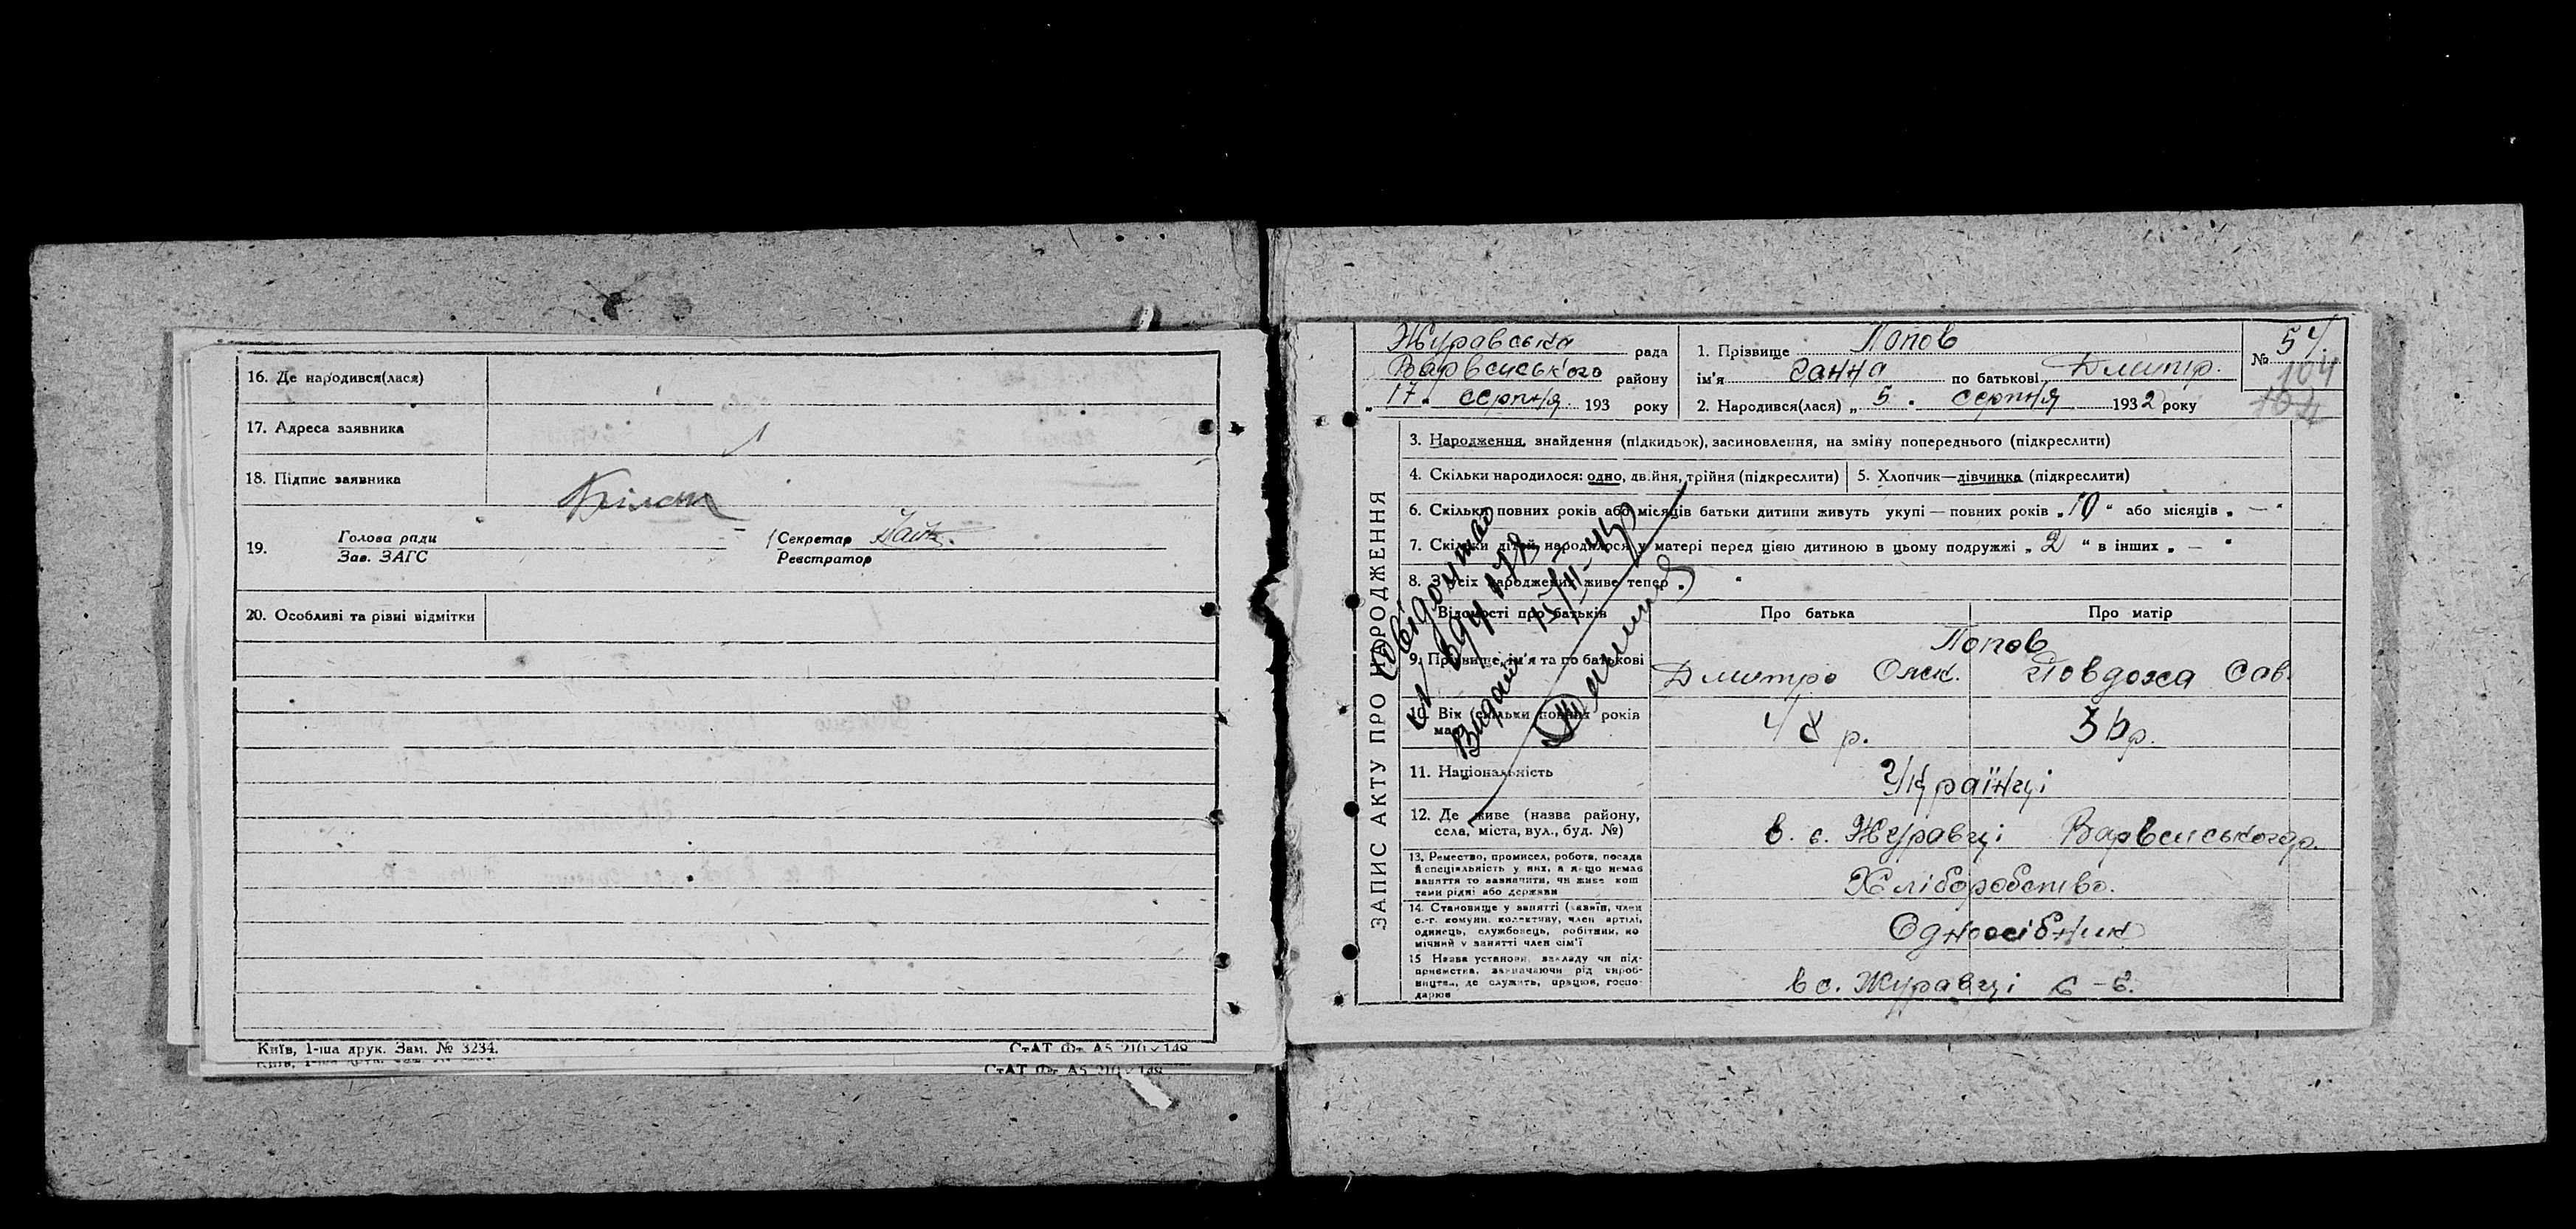 16. Де народився(лася)
17. Адреса заявника
18. Підпис заявника
19. Голова ради
Зав. ЗАГС
Секретар
Реєстратор
20. Особливі та різні відмітки
Київ, 1-ша друк. Зам. № 3234.
СтАТ Фт А5 210 × 149
СтАТ Фт А5 210 × 149
ЗАПИС АКТУ ПРО НАРОДЖЕННЯ
Журавська рада
Варвенського району
„ 17 „ серпня 193 року
1. Прізвище Попов
ім'я Ганна по батькові Дмитр.
2. Народився(лася) „ 5 „ серпня 1932 року
№ 54
104
3. Народження, знайдення (підкидьок), засиновлення, на зміну попереднього (підкреслити)
4. Скільки народилося: одно, двійня, трійня (підкреслити)
5. Хлопчик—дівчинка (підкреслити)
6. Скільки повних років або місяців батьки дитини живуть укупі — повних років „ 10 “ або місяців „ — “
7. Скільки дітей народилося у матері перед цією дитиною в цьому подружжі „ 2 “ в інших „ — “
8. З усіх народжених живе тепер
Відомості про батьків
Про батька
Про матір
9. Прізвище, ім'я та по батькові
Попов
Дмитро
Явдоха Сав.
10. Вік (скільки повних років має)
48 р.
36 р.
11. Національність
Українці
12. Де живе (назва району,
села, міста, вул., буд. №)
в. с. Журавці Варвенського р.
13. Ремество, промисел, робота, посада
й спеціяльність у них, а якщо немає
заняття то зазначити, чи живе кош
тами рідні або держави
Хліборобство.
14. Становище у занятті (хазяїн, член
с.-г. комуни, колективу, член артілі,
одинець, службовець, робітник, по
мічний у занятті член сім'ї
Одноосібник
15 Назва установи, закладу чи під-
приємства, зазначаючи рід вироб-
ництва, де служить, працює, госпо-
дарює
в с. Журавці
Свідоцтво
Видано